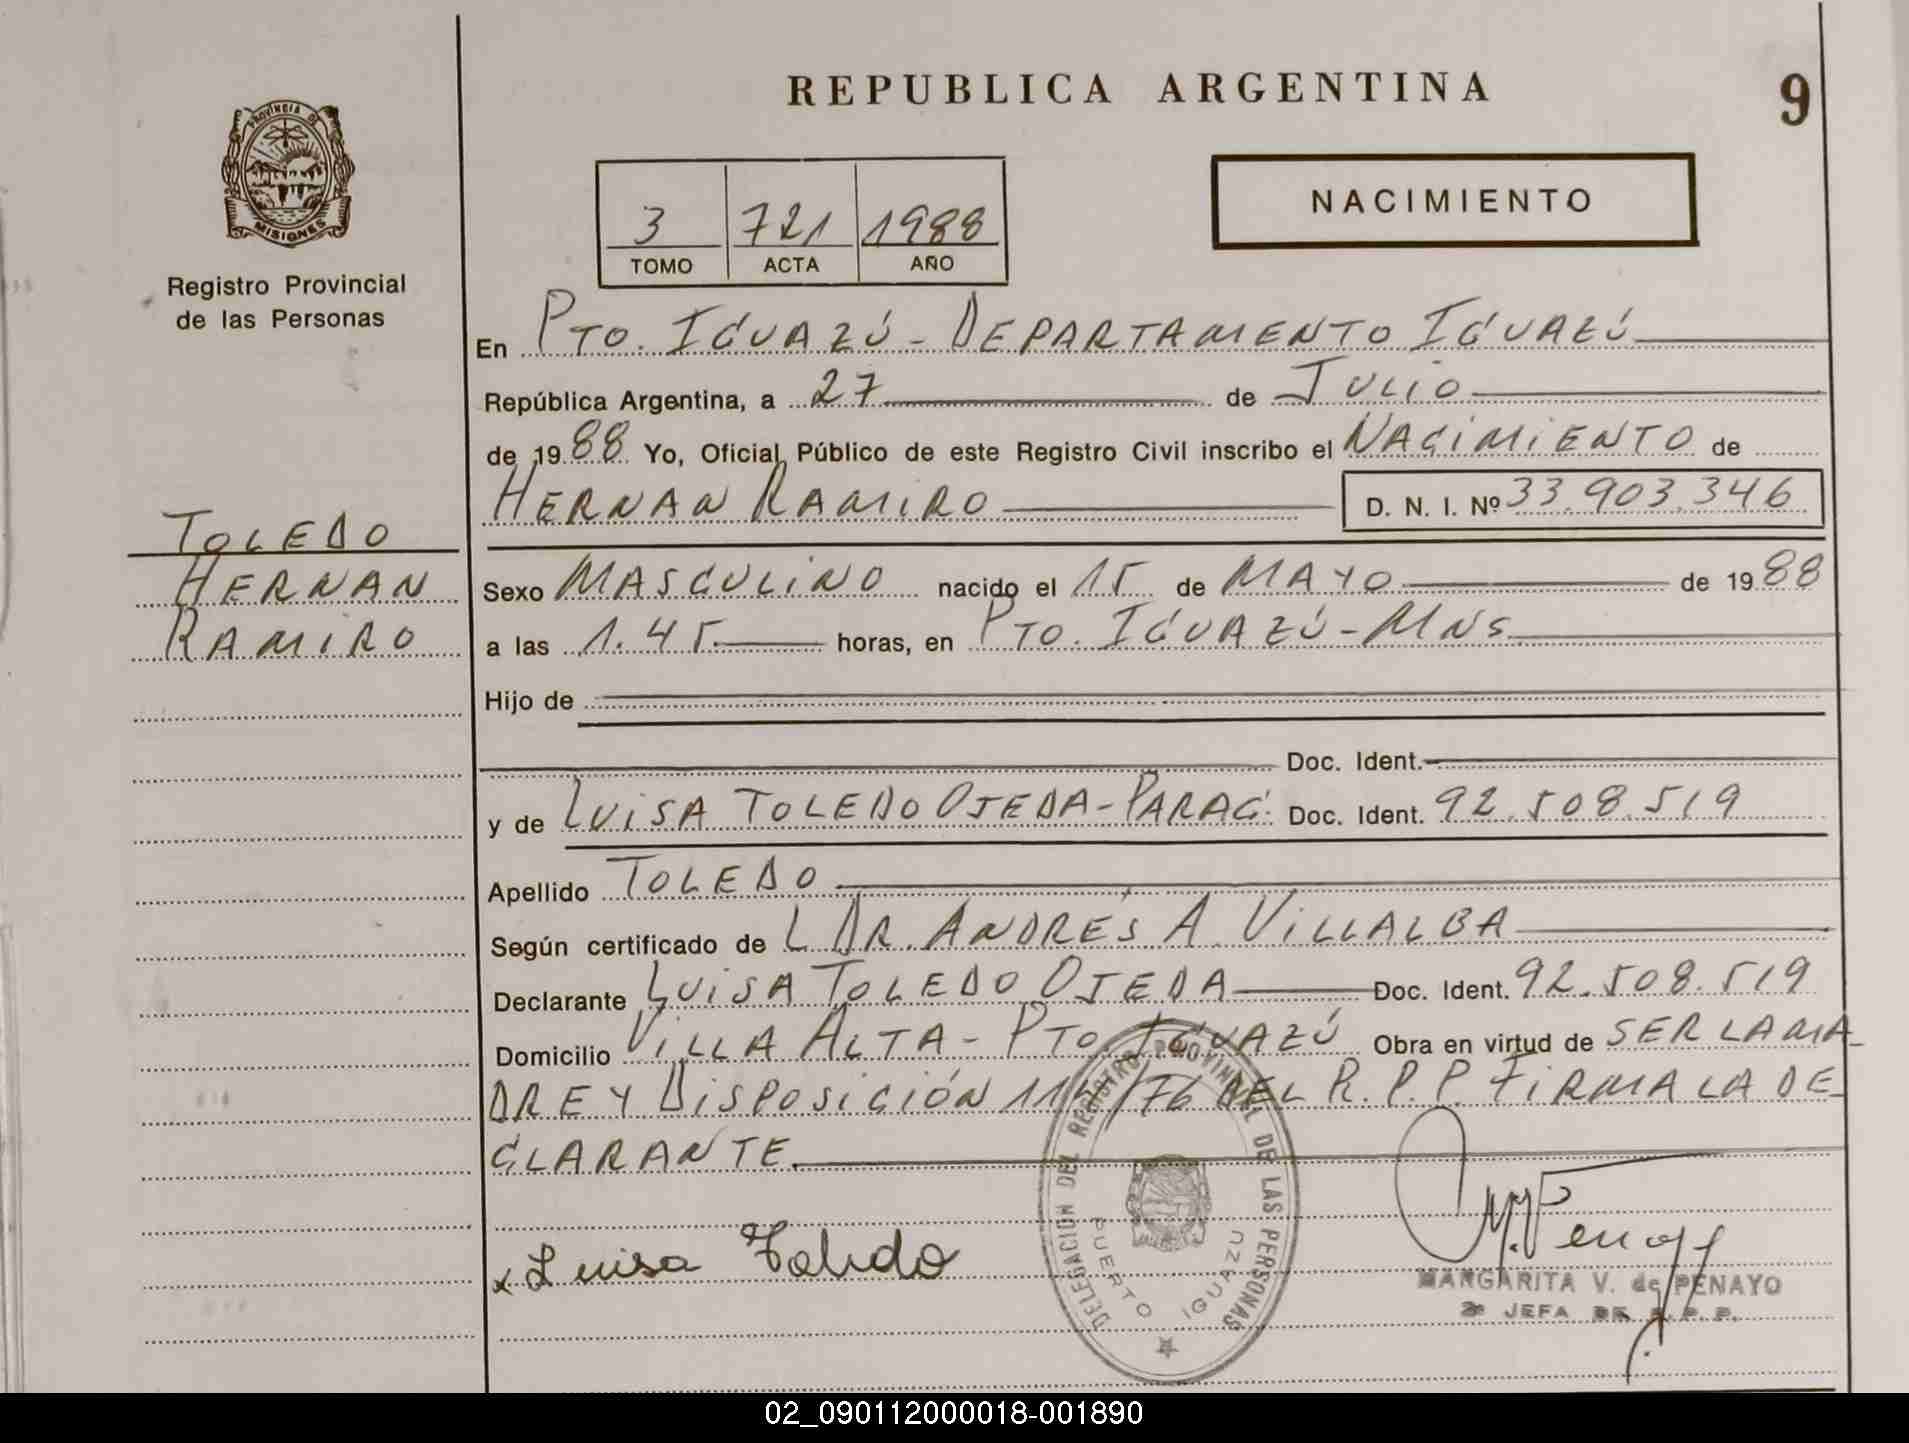 REPUBLICA ARGENTINA
9
PROVINCIA DE
MISIONES
Registro Provincial
de las Personas
3 721 1988
TOMO ACTA AÑO
NACIMIENTO
En PTO. IGUAZÚ - DEPARTAMENTO IGUAZÚ
República Argentina, a 27 de JULIO
de 1988 Yo, Oficial Público de este Registro Civil inscribo el NACIMIENTO de
HERNAN RAMIRO D. N. I. Nº 33.903.346
TOLEDO
HERNAN
RAMIRO
Sexo MASCULINO nacido el 15 de MAYO de 1988
a las 1.45 horas, en PTO. IGUAZÚ - MNS
Hijo de
Doc. Ident.
y de LUISA TOLEDO OJEDA - PARAG. Doc. Ident. 92.508.519
Apellido TOLEDO
Según certificado de L DR. ANDRÉS A. VILLALBA
Declarante LUISA TOLEDO OJEDA Doc. Ident. 92.508.519
Domicilio VILLA ALTA - PTO. IGUAZÚ Obra en virtud de SER LA MA-
DRE Y DISPOSICIÓN /76 DEL R. P. P. FIRMA LA DE-
CLARANTE
x Luisa Toledo
DELEGACION DEL REGISTRO PROVINCIAL DE LAS PERSONAS
PUERTO IGUAZU
M. Penayo
MARGARITA V. de PENAYO
JEFA DE R.P.P.
02_090112000018-001890